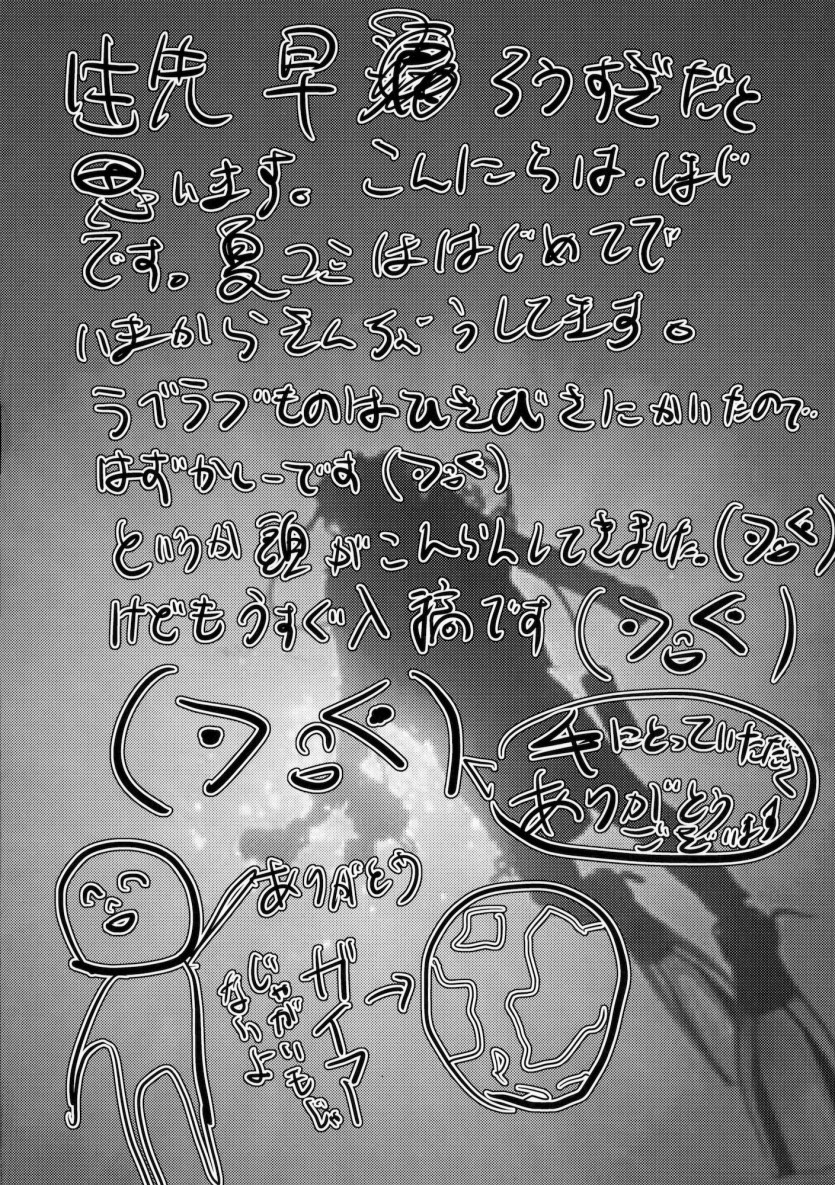 先 早ろうすぎだと
思います。こんにちは、はじ
です。夏コミははじめてで
いまからきんちょうしてます。
ラブラブものはひさびさにかいたので
はずかしーです
というか頭がこんらんしてきました。
けどもうすぐ入稿です
手にとっていただき
ありがとう
ございます
ありがとう
ガイアー
じゃがいもじゃ
ないよ